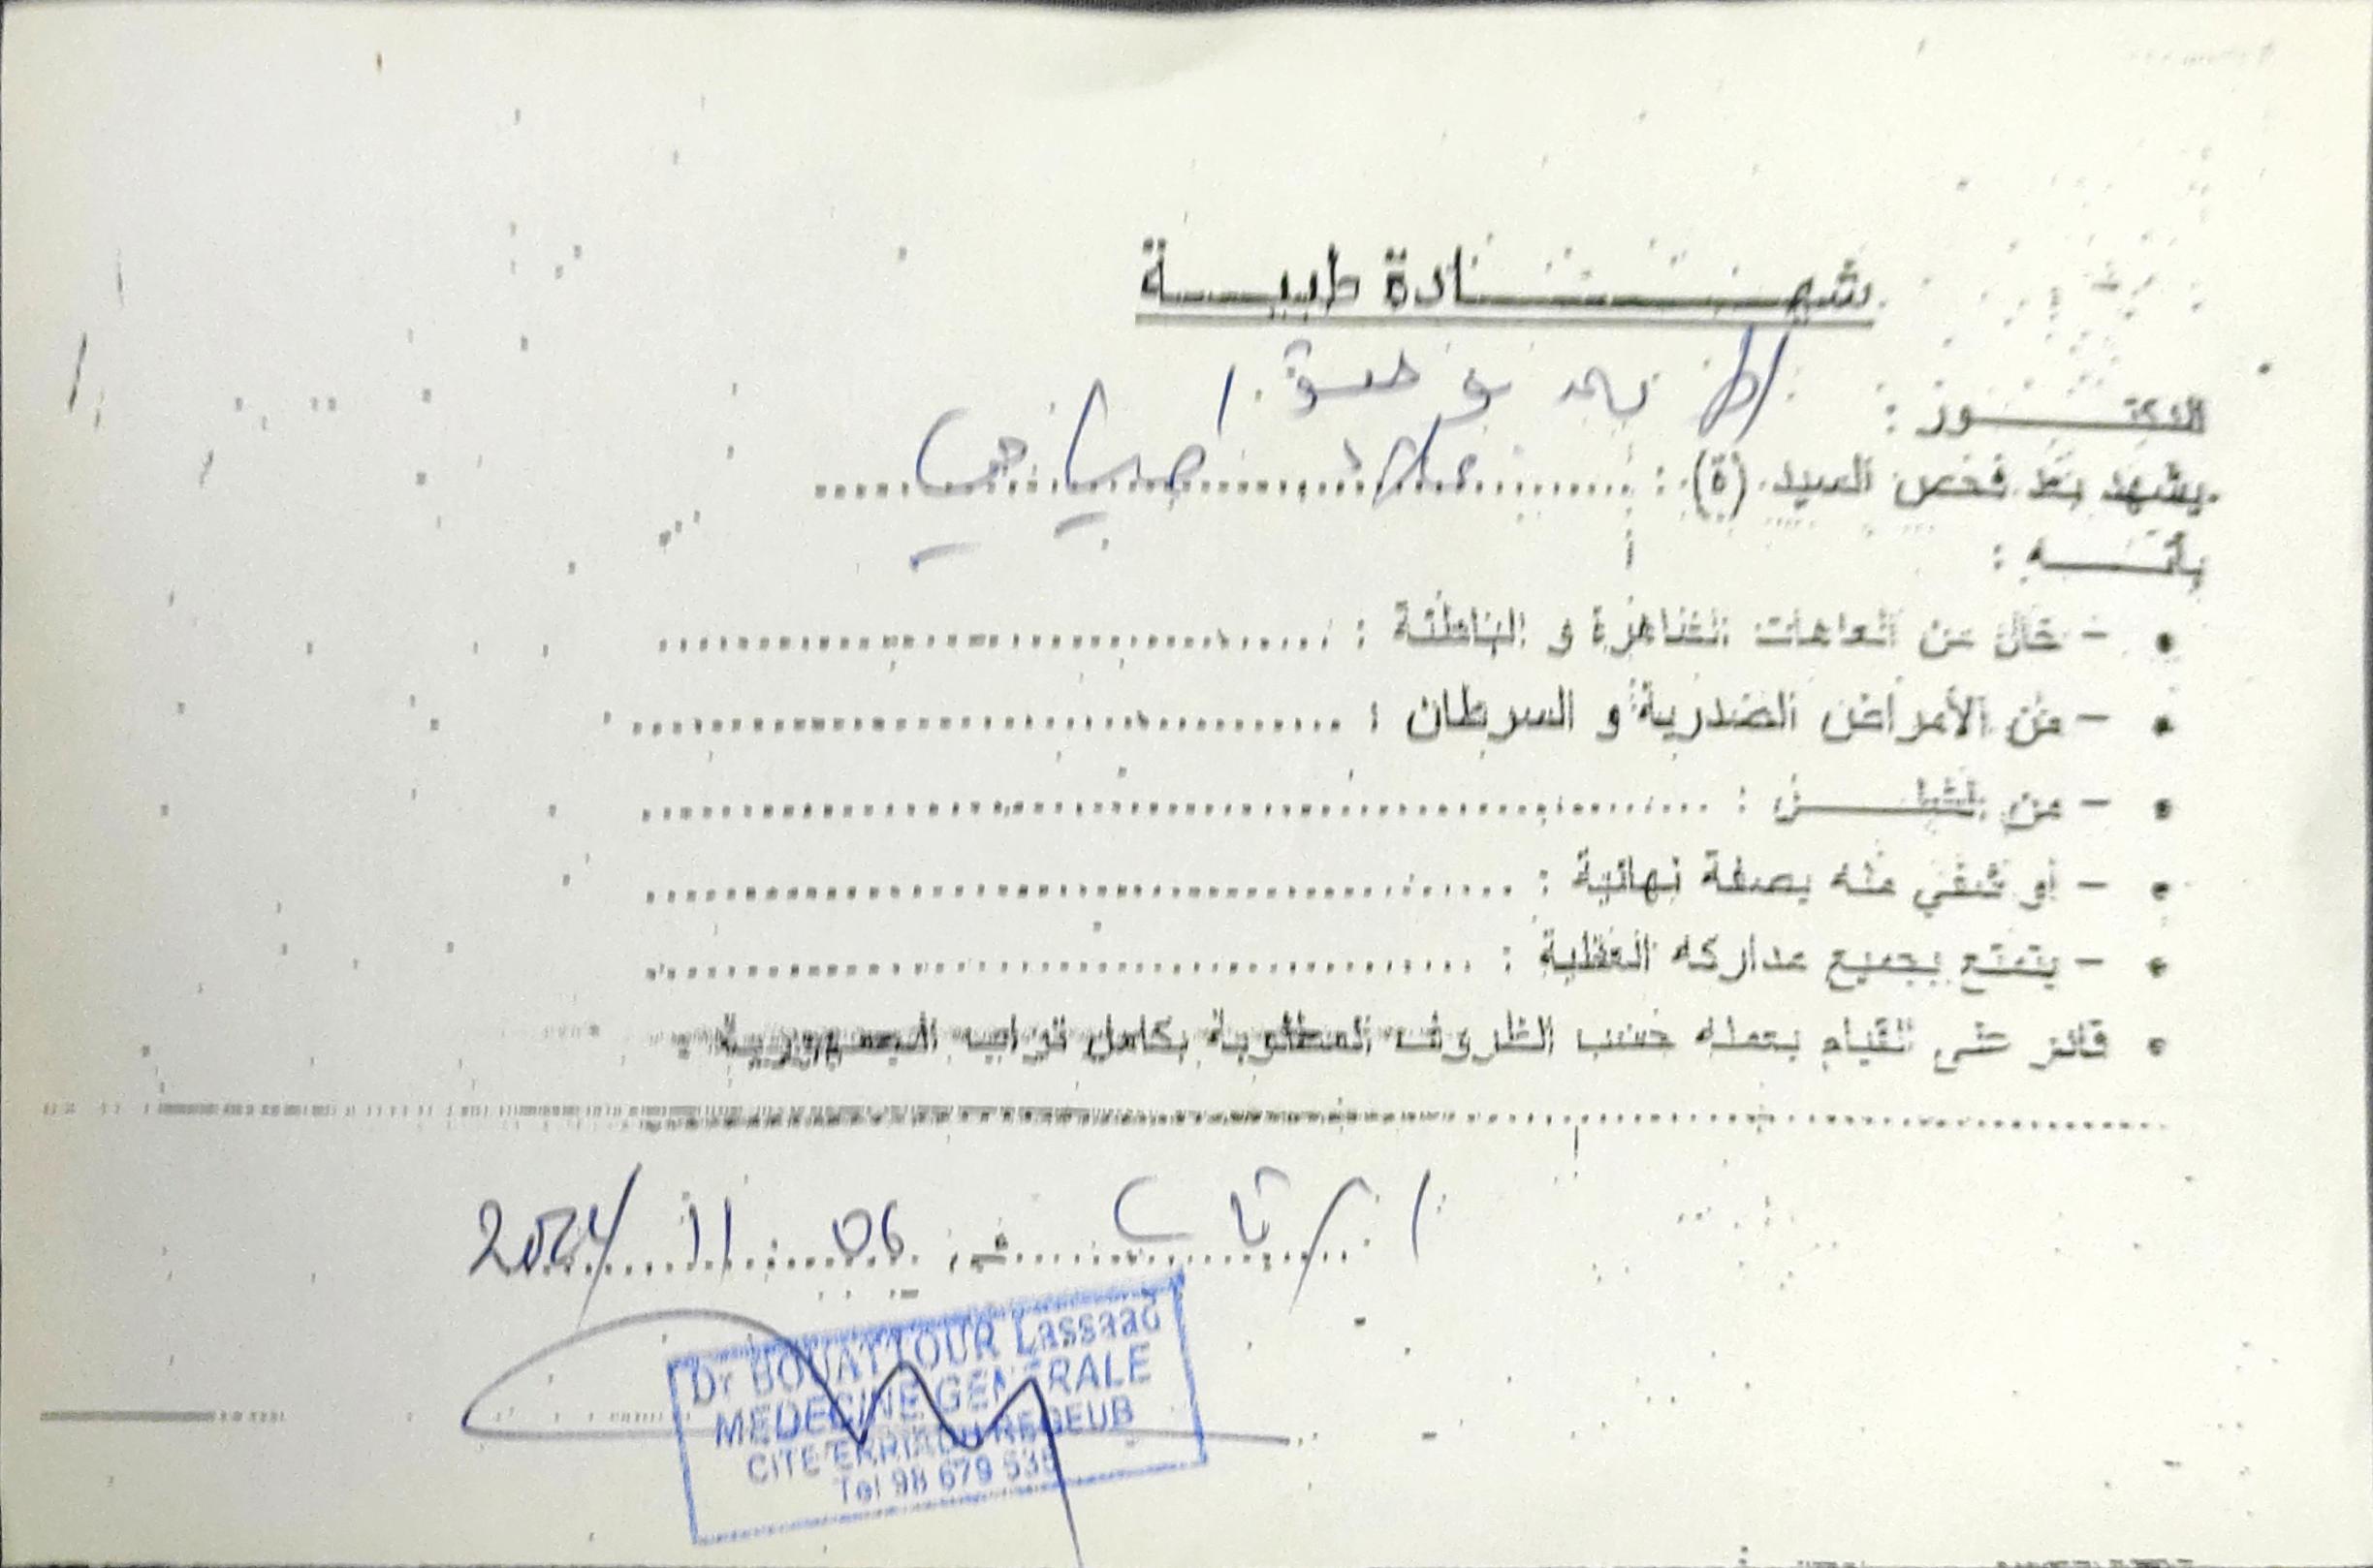 شهادة طبية
الدكتور :
يشهد بعد فحص السيد (ة) : ............
بأنه :
• - خال من العاهات الظاهرة و الباطنة : ............
• - من الأمراض الصدرية و السرطان : ............
• - من الشلل : ............
• - أو شفي منه بصفة نهائية : ............
• - يتمتع بجميع مداركه العقلية : ............
• قادر على القيام بعمله حسب الظروف المطلوبة بكامل تراب الجمهورية :
الرقاب في 06 11 2024
Dr BOUATTOUR Lassaad
MEDECINE GENERALE
CITE ERRIADH REGEUB
Tel 98 679 535